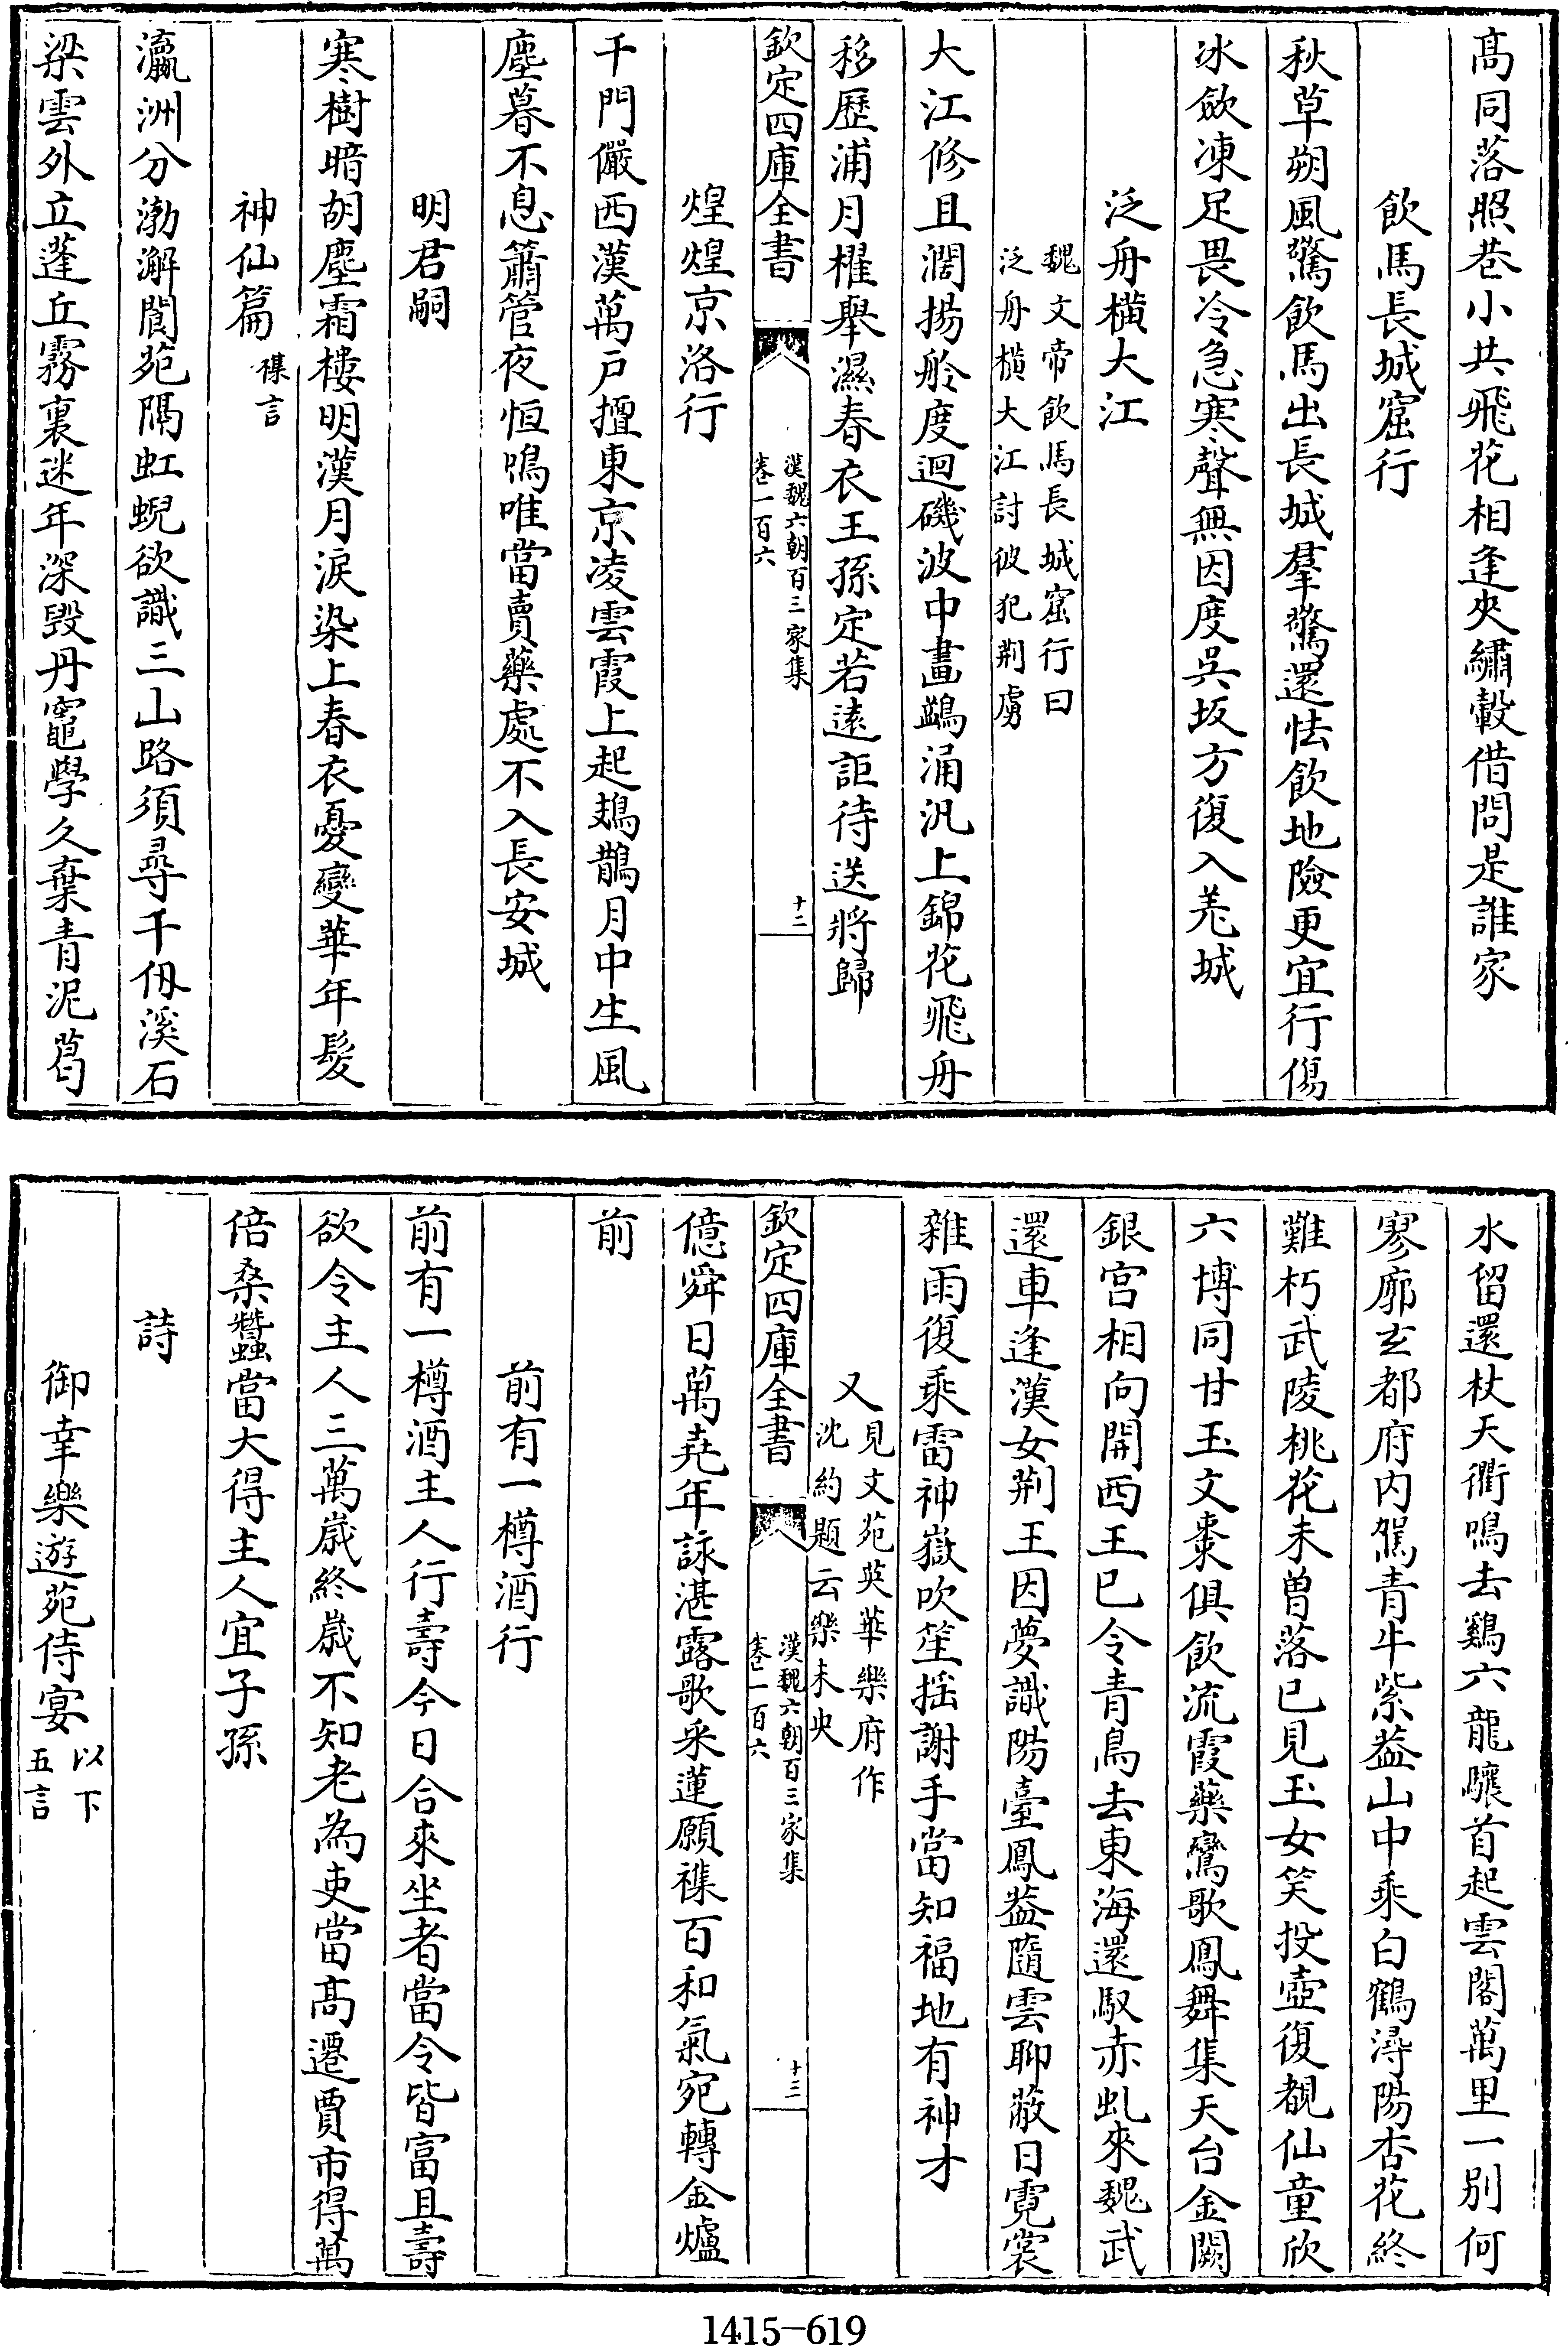 髙同落照巷小共飛花相逢夾繡轂借問是誰家
飲馬長城窟行
秋草朔風驚飲馬出長城羣驚還怯飲地險更宜行傷
冰歛凍足畏冷急寒聲無因度吳坂方復入羌城
泛舟横大江
魏文帝飲馬長城窟行曰
泛舟横大江討彼犯荆虜
大江修且濶揚舲度迴磯波中畫鷁涌汎上錦花飛舟
移歴浦月櫂舉濕春衣王孫定若遠詎待送將歸
欽定四庫全書
漢魏六朝百三家集
卷一百六
十二
煌煌京洛行
千門儼西漢萬戸擅東京凌雲霞上起鳷鵲月中生風
塵暮不息簫管夜恒鳴唯當賣藥處不入長安城
明君嗣
寒樹暗胡塵霜樓明漢月淚染上春衣憂變華年髮
神仙篇
襍言
瀛洲分渤澥閬苑隔虹蜺欲識三山路須尋千仭溪石
梁雲外立蓬丘霧裏迷年深毀丹竈學久棄青泥葛
水留還杖天衢鳴去鷄六龍驤首起雲閣萬里一别何
寥廓玄都府内駕青牛紫葢山中乘白鶴潯陽杏花終
難朽武陵桃花未曽落已見玉女笑投壺復覩仙童欣
六博同甘玉文棗俱飲流霞藥鸞歌鳳舞集天台金闕
銀宫相向開西王已令青鳥去東海還馭赤虬來魏武
還車逢漢女荆王因夢識陽臺鳳葢隨雲聊蔽日霓裳
雜雨復乘雷神嶽吹笙揺謝手當知福地有神才
又
見文苑英華樂府作
沈約題云樂未央
欽定四庫全書
漢魏六朝百三家集
卷一百六
十三
億舜日萬尭年詠湛露歌采蓮願襍百和氣宛轉金爐
前
前有一樽酒行
前有一樽酒主人行壽今日合來坐者當令皆富且壽
欲令主人三萬嵗終嵗不知老為吏當髙遷賈市得萬
倍桑蠶當大得主人宜子孫
詩
御幸樂遊苑侍宴
以下
五言
1415-619